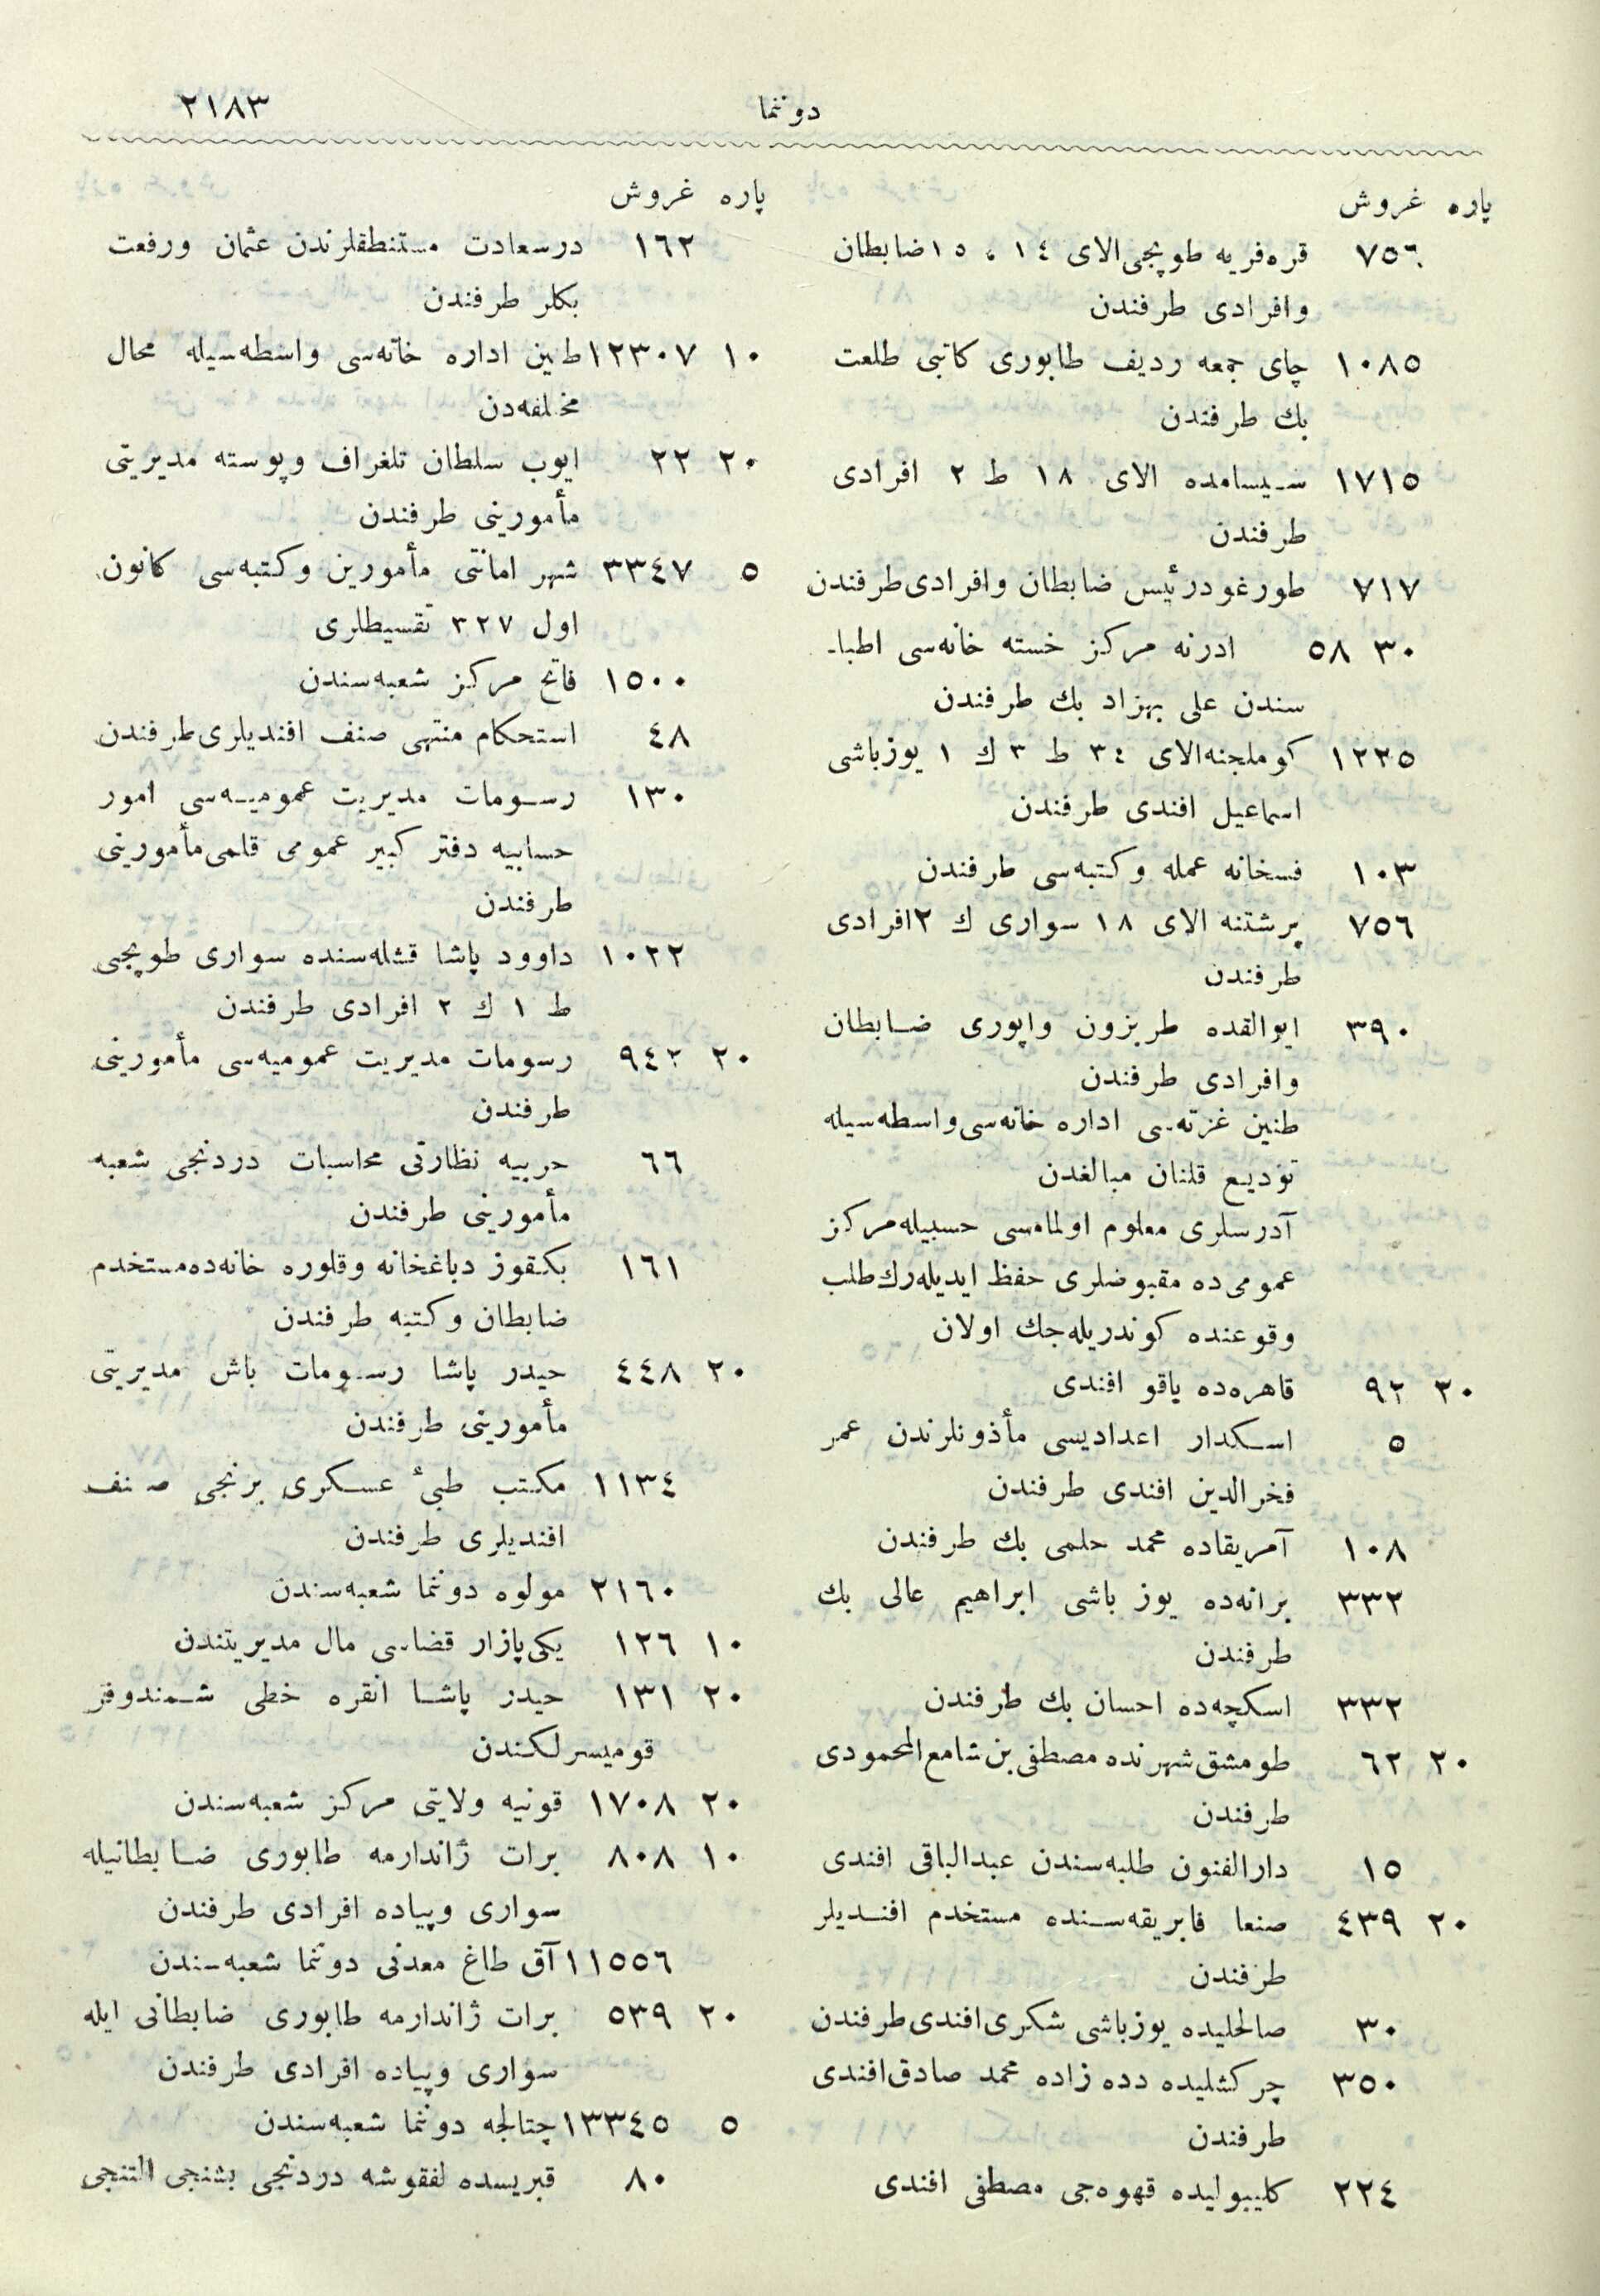 دوننما ٢١٨٣
پاره غروش
٧٥٦ قره‌فریه طوپجی الای ١٤ ، ١٥ ضابطان
وافرادی طرفندن
١٠٨٥ چای جمعه ردیف طابوری کاتبی طلعت
بك طرفندن
١٧١٥ سیسامده الای ١٨ ط ٢ افرادی
طرفندن
٧١٧ طورغودرئیس ضابطان وافرادی طرفندن
٣٠ ٥٨ ادرنه مرکز خسته خانه‌سی اطبا-
سندن علی بهزاد بك طرفندن
١٢٢٥ کوملجنه الای ٣٤ ط ٣ ك ١ یوزباشی
اسماعیل افندی طرفندن
١٠٣ فسخانه عمله وکتبه‌سی طرفندن
٧٥٦ پرشتنه الای ١٨ سواری ك ٢ افرادی
طرفندن
٣٩٠ ایوالقده طربزون واپوری ضابطان
وافرادی طرفندن
طنین غزته‌سی اداره خانه‌سی واسطه‌سیله
تودیع قلنان مبالغدن
آدرسلری معلوم اولمامسی حسبیله مرکز
عمومی‌ده مقبوضلری حفظ ایدیله‌رك طلب
وقوعنده کوندریله‌جك اولان
٢٠ ٩٢ قاهره‌ده یاقو افندی
٥ اسکدار اعدادیسی مأذونلرندن عمر
فخرالدین افندی طرفندن
١٠٨ آمریقاده محمد حلمی بك طرفندن
٣٣٢ برانه‌ده یوز باشی ابراهیم عالی بك
طرفندن
٣٣٢ اسکچه‌ده احسان بك طرفندن
٢٠ ٦٢ طومشق شهرنده مصطفی بن شامع المحمودی
طرفندن
١٥ دارالفنون طلبه‌سندن عبدالباقی افندی
٢٠ ٤٣٩ صنعا فابریقه‌سنده مستخدم افندیلر
طرفندن
٣٠ صالحلیده یوزباشی شکری افندی طرفندن
٣٥٠ چرکشلیده دده زاده محمد صادق افندی
طرفندن
٢٢٤ کلیبولیده قهوه‌جی مصطفی افندی
پاره غروش
١٦٢ درسعادت مستنطقلرندن عثمان ورفعت
بکلر طرفندن
١٠ ١٢٣٠٧ طنین اداره خانه‌سی واسطه‌سیله محال
مختلفه‌دن
٢٠ ٢٢ ایوب سلطان تلغراف وپوسته مدیریتی
مأمورینی طرفندن
٥ ٣٣٤٧ شهر امانتی مأمورین وکتبه‌سی کانون
اول ٣٢٧ تقسیطلری
١٥٠٠ فاتح مرکز شعبه‌سندن
٤٨ استحکام منتهی صنف افندیلری طرفندن
١٣٠ رسومات مدیریت عمومیه‌سی امور
حسابیه دفتر کبیر عمومی قلمی مأمورینی
طرفندن
١٠٢٢ داوود پاشا قشله‌سنده سواری طوپجی
ط ١ ك ٢ افرادی طرفندن
٢٠ ٩٤٢ رسومات مدیریت عمومیه‌سی مأمورینی
طرفندن
٦٦ حربیه نظارتی محاسبات دردنجی شعبه
مأمورینی طرفندن
١٦١ بکقوز دباغخانه وقلوره خانه‌ده مستخدم
ضابطان وکتبه طرفندن
٢٠ ٤٤٨ حیدر پاشا رسومات باش مدیریتی
مأمورینی طرفندن
١١٣٤ مکتب طبیٔ عسکری برنجی صنف
افندیلری طرفندن
٢١٦٠ مولوه دوننما شعبه‌سندن
١٠ ١٢٦ یکی پازار قضاسی مال مدیریتندن
٢٠ ١٣١ حیدر پاشا انقره خطی شمندوفر
قومیسرلکندن
٢٠ ١٧٠٨ قونیه ولایتی مرکز شعبه‌سندن
١٠ ٨٠٨ برات ژاندارمه طابوری ضابطانیله
سواری وپیاده افرادی طرفندن
١١٥٥٦ آق طاغ معدنی دوننما شعبه‌سندن
٢٠ ٥٣٩ برات ژاندارمه طابوری ضابطانی ایله
سواری وپیاده افرادی طرفندن
٥ ١٣٣٤٥ چتالجه دوننما شعبه‌سندن
٨٠ قبریسده لفقوشه دردنجی بشنجی التنجی